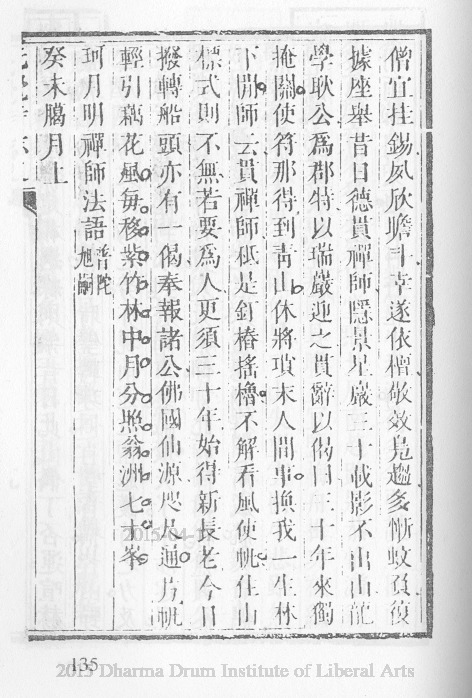 僧宜挂錫夙欣瞻斗幸遂依僧敬效鳧趨多慚蚊負復
據座舉昔日德貫禪師隱景星巖三十載影不出山龍
學耿公爲郡特以瑞巖迎之貫辭以偈曰三十年來獨
掩關使符那得到靑山休將瑣末人間事換我一生林
下閒師云貫禪師秪是釘樁搖櫓不解看風使帆住山
標式則不無若要爲人更須三十年始得新長老今日
撥轉船頭亦有一偈奉報諸公佛國仙源咫尺通片帆
輕引藕花風每移紫竹林中月分照翁洲七十峯
珂月明禪師法語 普陀旭嗣
癸未臈月上
2015-04-15
135
2015 Dharma Drum Institute of Liberal Arts